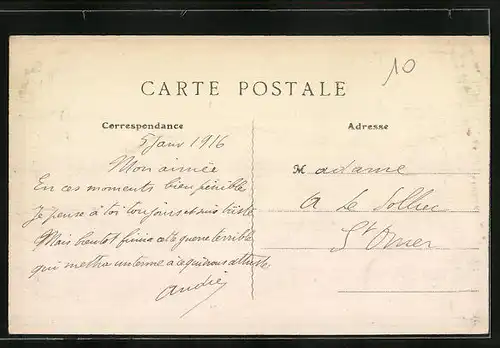 10
CARTE POSTALE
Correspondance
Adresse
5 Janv 1916
Mon aimée
En ces moments bien pénible
Je pense à toi toujours et suis triste
Mais bientot finira cette guerre terrible
qui mettra un terme à ce qui nous attriste
André
Madame
A Le Solliec
St Omer